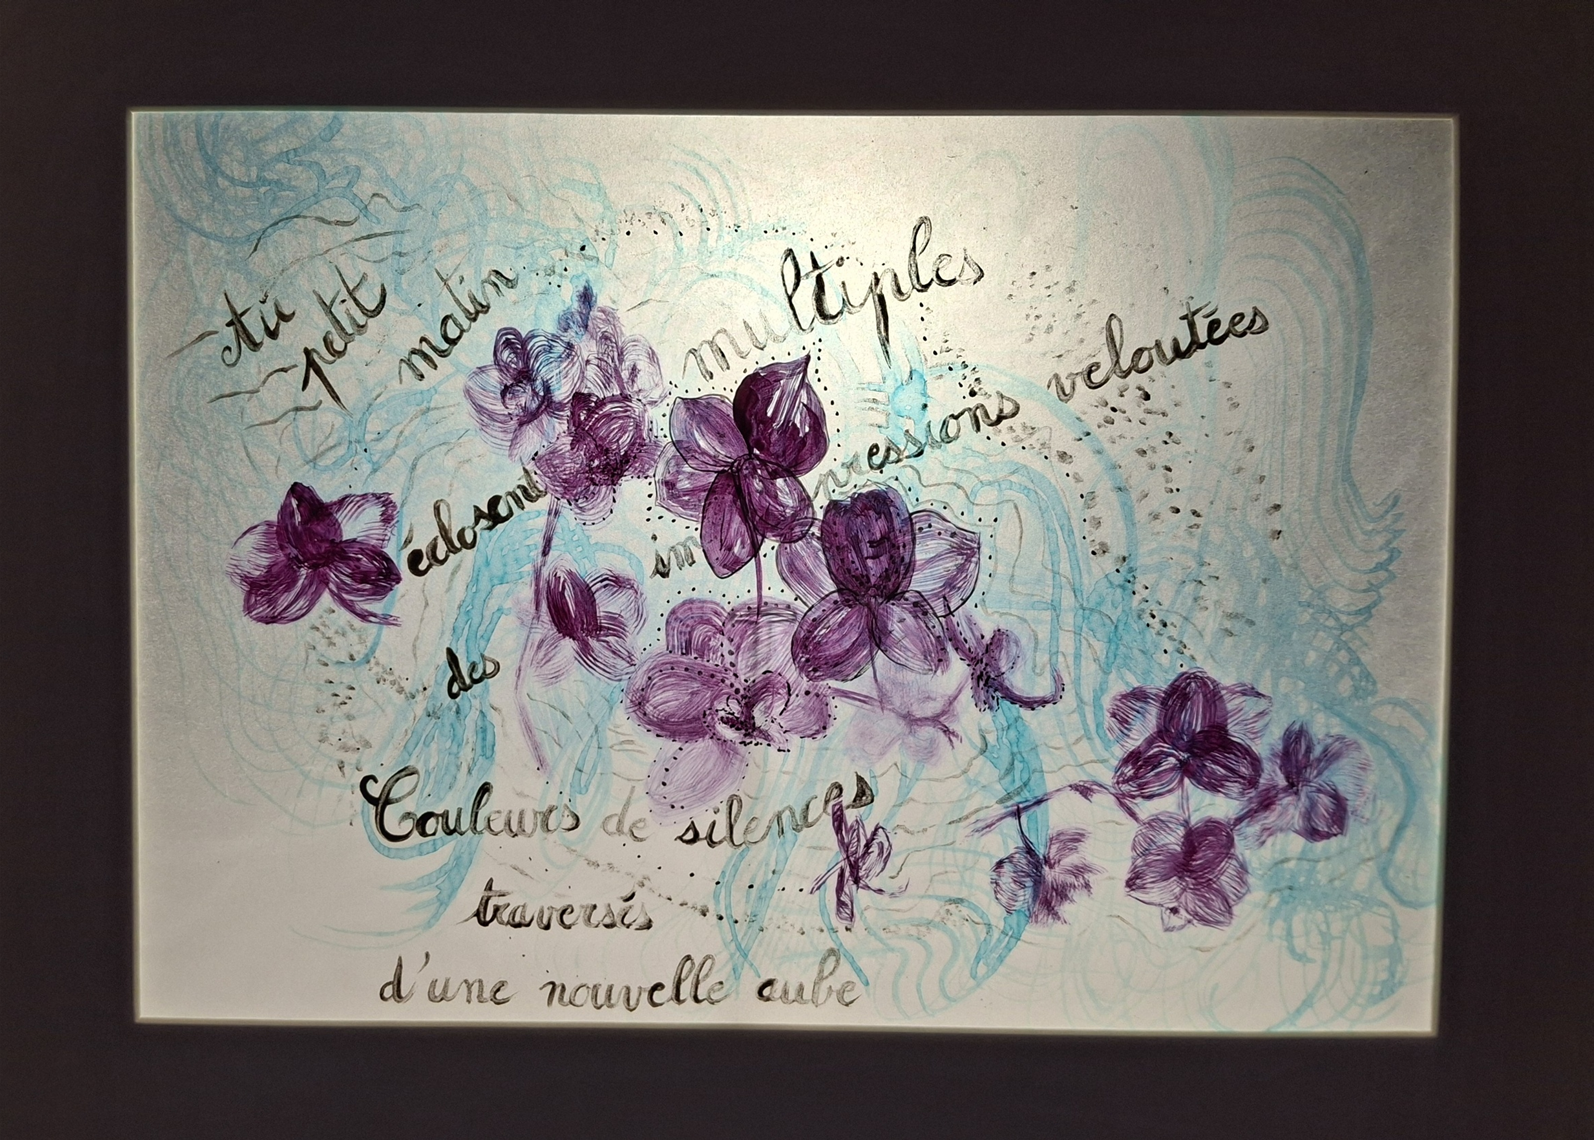 Au
petit
matin
éclosent
des
multiples
impressions veloutées
Couleurs de silences
traversés
d'une nouvelle aube